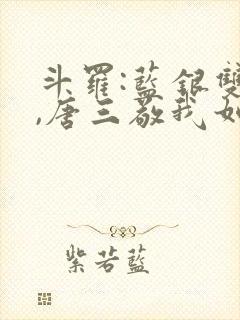 斗羅:藍銀雙
,唐三敬我如
紫若藍